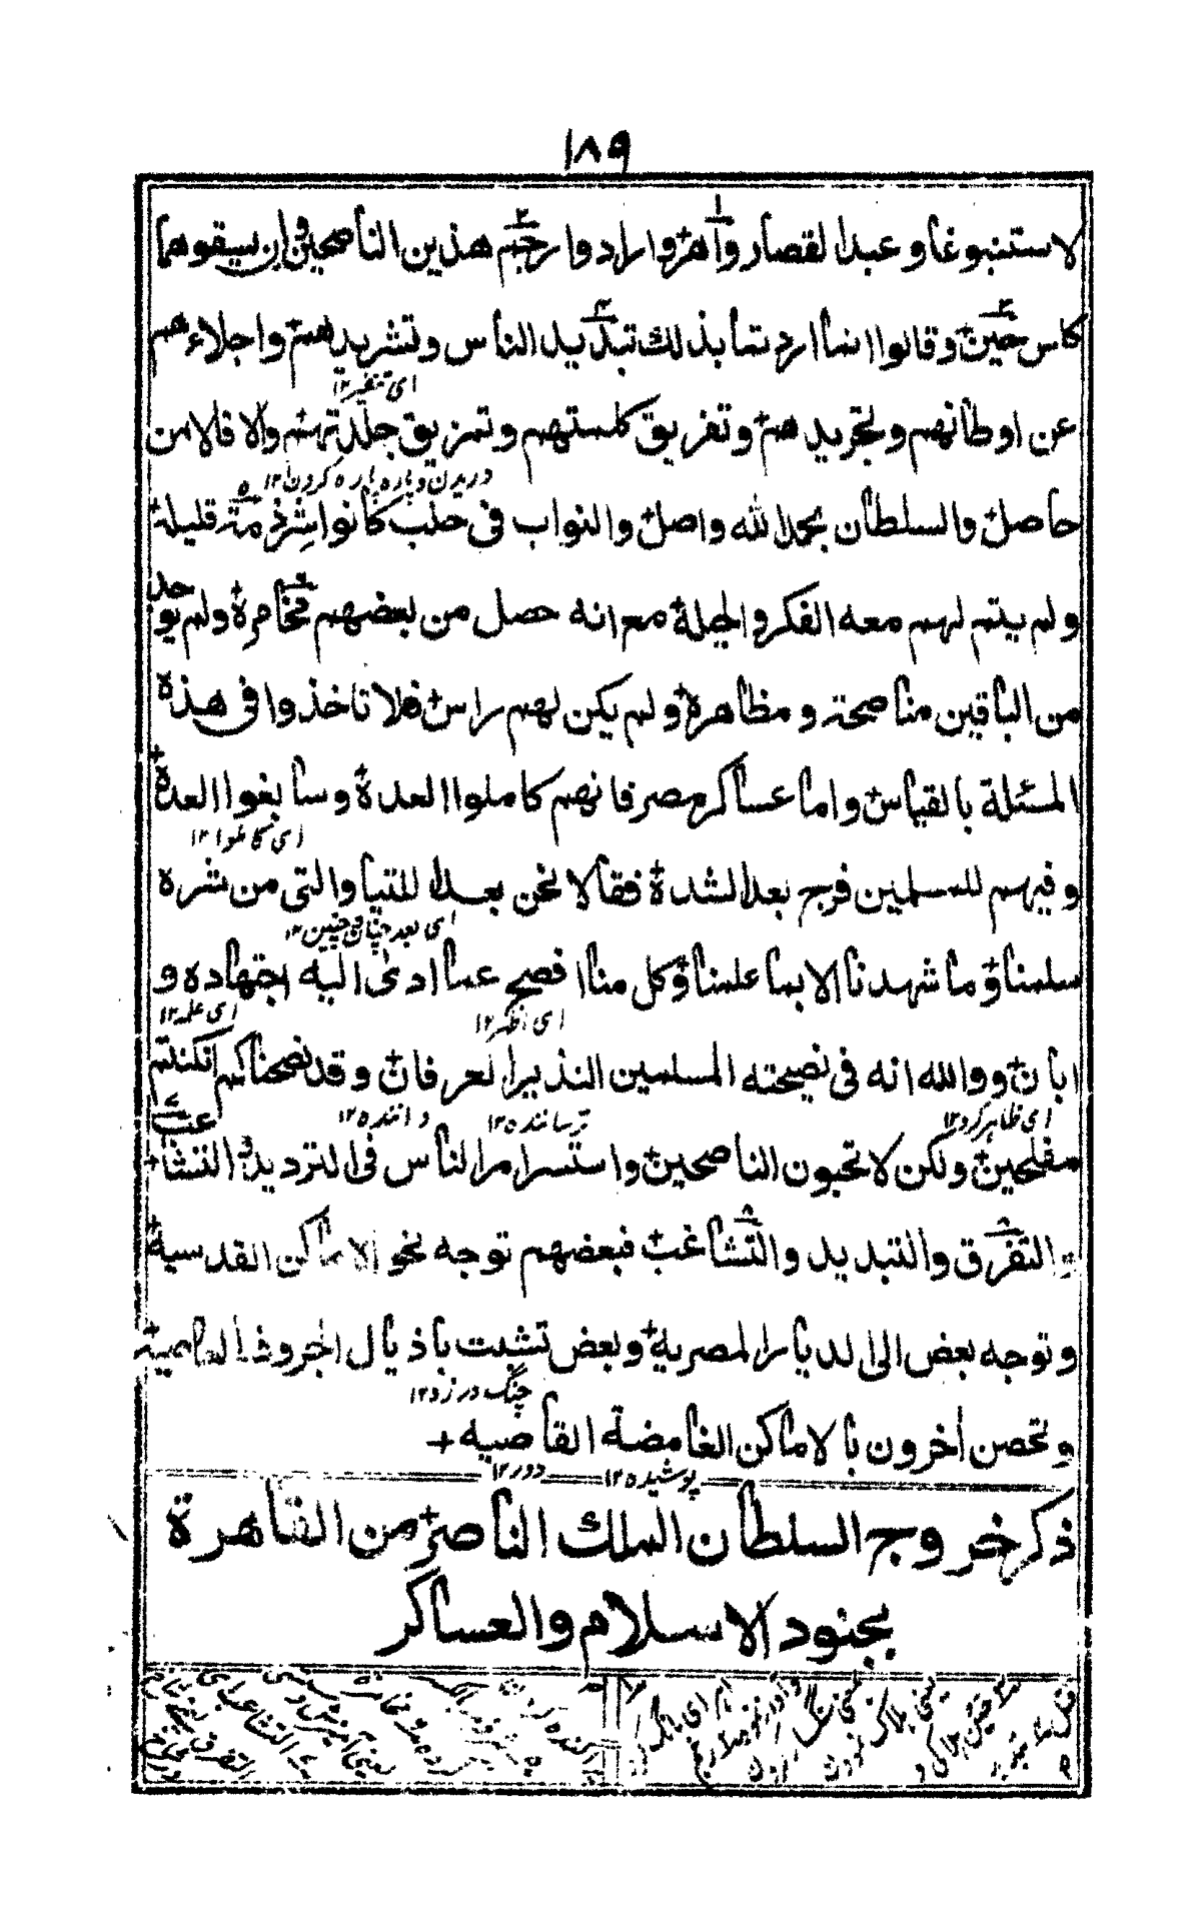 ١٨٩
لاستنبوغا وعبد القصار وآهر وارادوا رجم هذين الناصحين وان يسقوهما
كاس حين وقالوا انما اردتما بذلك تبديد الناس وتشريدهم واجلاءهم
اى تنفير ١٢
عن اوطانهم وتجريدهم وتفريق كلمتهم وتمزيق جلدتهم والا فلا من
دريدن وپاره پاره كردن ١٢
حاصل والسلطان بحمد الله واصل والنواب فى حلب كانوا شرذمة قليلة
ولم يتم لهم معه الفكر والحيلة مع انه حصل من بعضهم مخامرة ولم يوجد
من الباقين مناصحة ومظاهرة ولم يكن لهم راس فلا تاخذوا فى هذه
المسئلة بالقياس واما عساكر مصر فانهم كاملوا العدة وسابغوا العدة
اى كاملوا ١٢
وفيهم للمسلمين فرج بعد الشدة فقالا نحن بعد اللتيا والتى من شره
اى بعد چنان وچنين ١٢
سلمنا وما شهدنا الا بما علمنا وكل منا افصح عما ادى اليه اجتهاده و
اى اظهر ١٢ اى علمه ١٢
ابان ووالله انه فى نصيحته المسلمين النذير العرفان وقد نصحناكم ان كنتم
اى ظاهر كرد ١٢ ترساننده ١٢ داننده ١٢
مفلحين ولكن لا تحبون الناصحين واستمر امر الناس فى الترديد والتشاعب
والتفرق والتبديد والتشاغب فبعضهم توجه نحو الاماكن القدسية
وتوجه بعض الى الديار المصرية وبعض تشبث باذيال الجروف العاصمية
چنگ در زد ١٢
وتحصن اخرون بالاماكن الغامضة القاصيه
پوشيده ١٢ دور ١٢
ذكر خروج السلطان الملك الناصر من القاهرة
بجنود الاسلام والعساكر